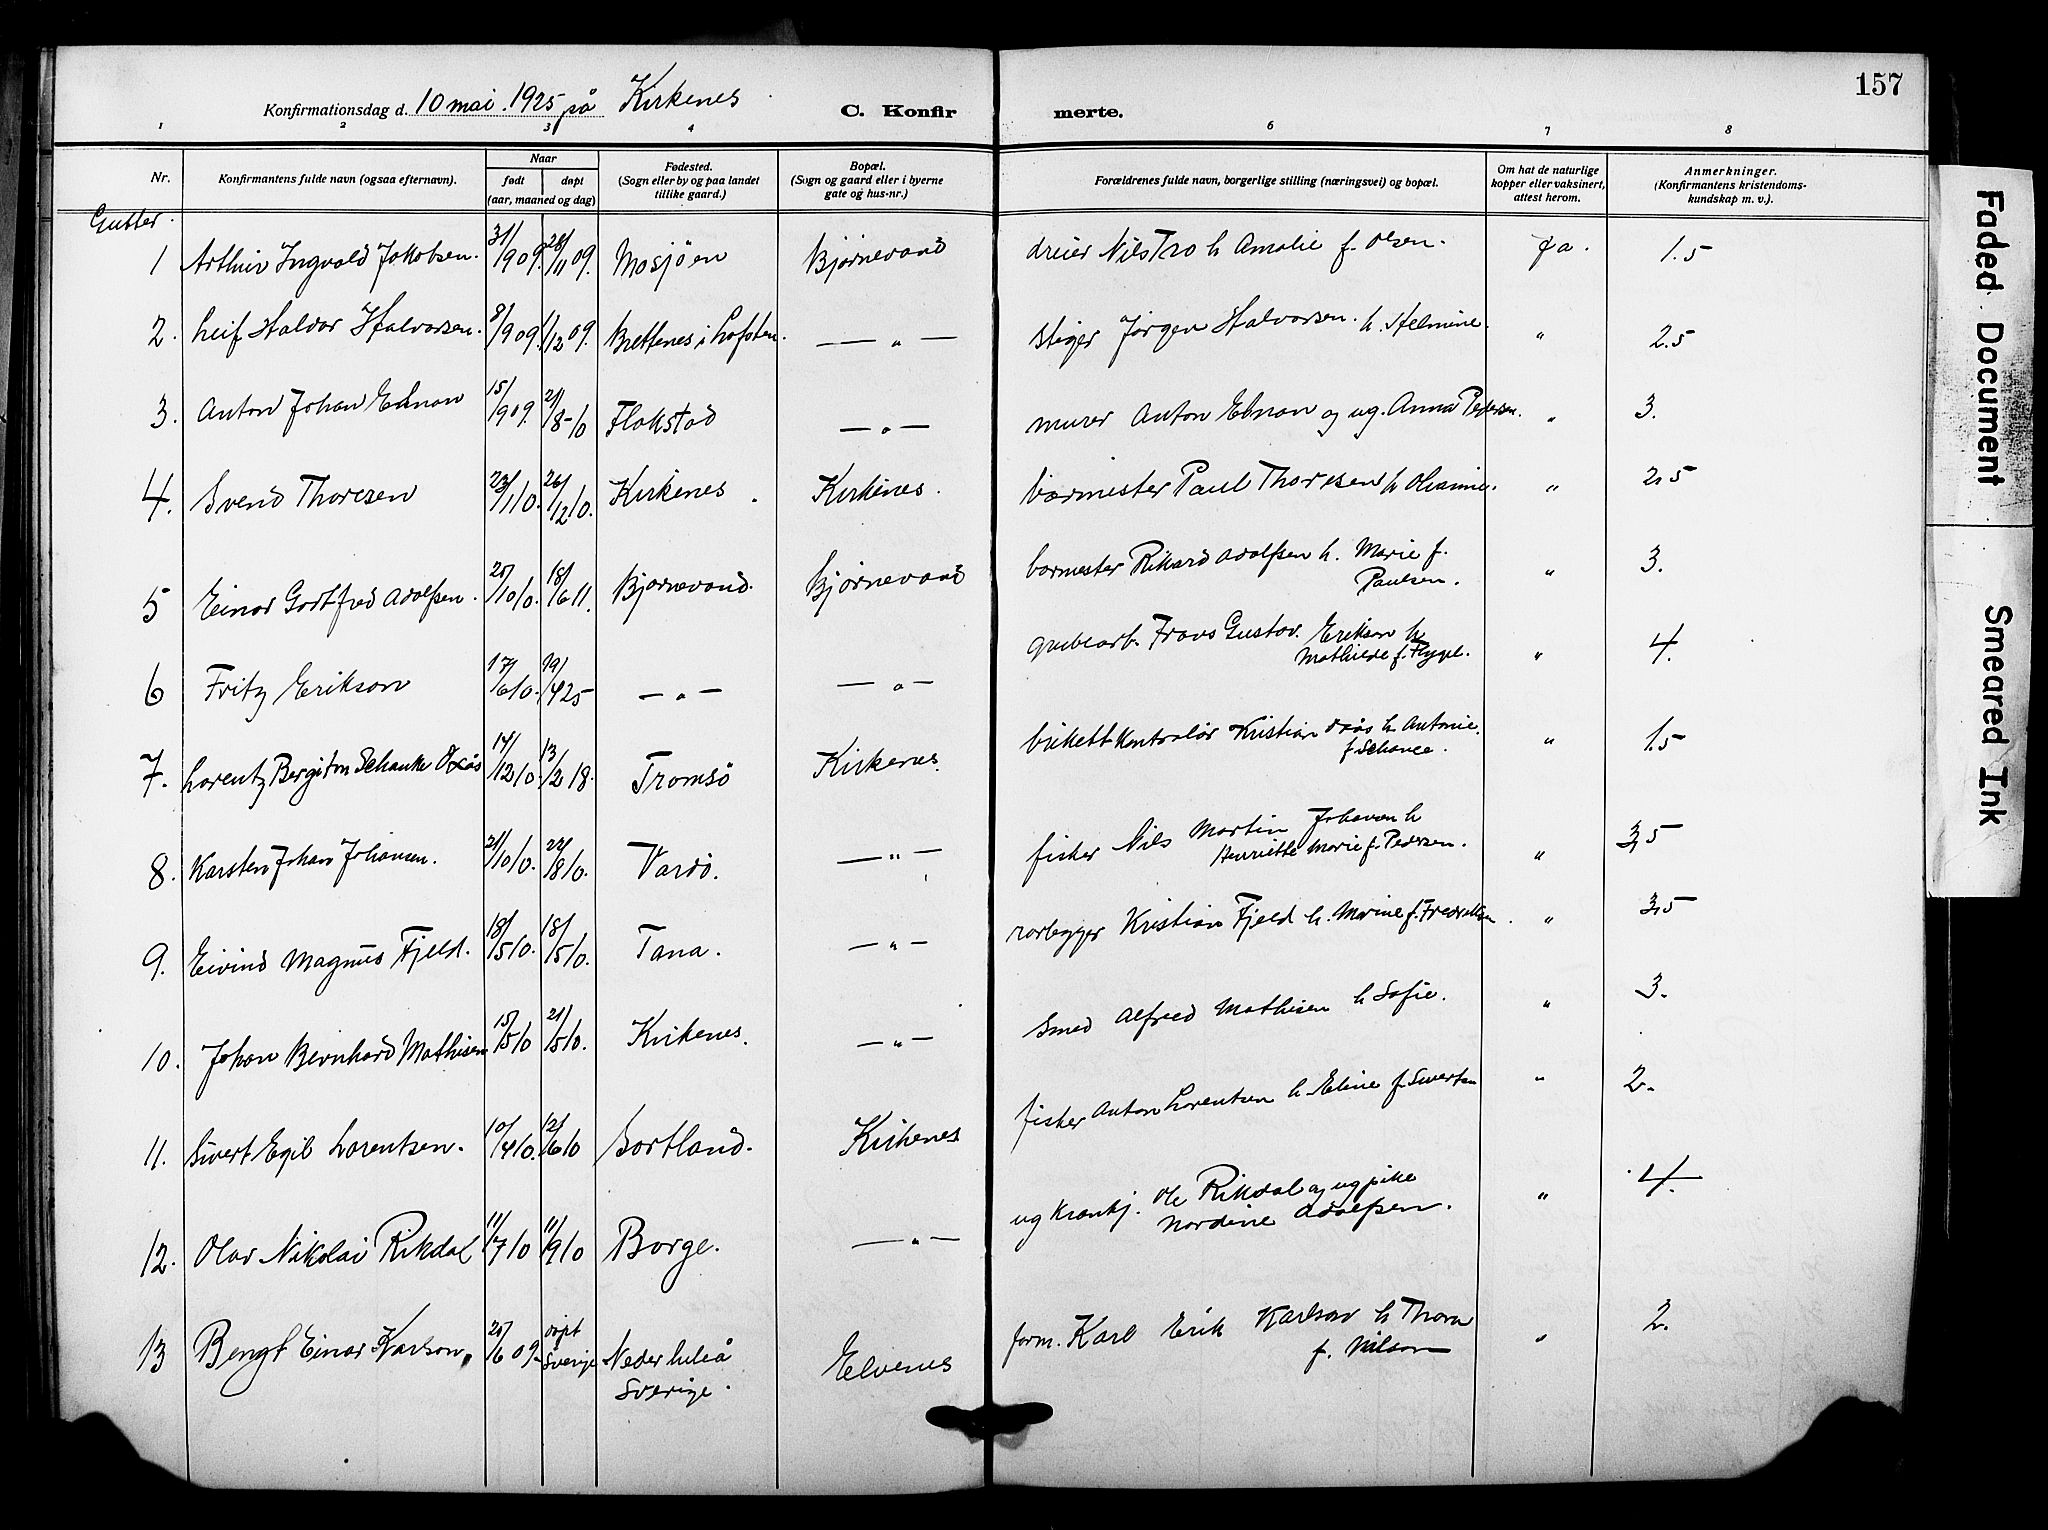 157
Konfirmationsdag d. 10 mai 1925 på Kirkenes
C. Konfirmerte.
1 2 3 4 6 7 8
Nr. Konfirmantens fulde navn (ogsaa efternavn). Naar født døpt (aar, maaned og dag) Fødested. (Sogn eller by og paa landet tillike gaard.) Bopæl. (Sogn og gaard eller i byerne gate og hus-nr.) Forældrenes fulde navn, borgerlige stilling (næringsvei) og bopæl. Om hat de naturlige kopper eller vaksinert, attest herom. Anmerkninger. (Konfirmantens kristendoms-kundskap m. v.).
Gutter.
1 Arthur Ingvald Jakobsen. 31/9 09. 28/11 09. Mosjøen Bjørnevand dreier Nils Tro h Amalie f. Olsen. ja. 1.5
2. Leif Haldor Halvorsen. 8/9 09. 1/12 09. Brettenes i Lofoten. — " — stiger Jørgen Halvorsen. h. Helmine. " 2.5
3. Anton Johan Ebnon 15/9 09. 2/8 – 10 Flakstad — " — murer Anton Ebnon og ug. Anna Pedersen. " 3.
4. Svend Thoresen 23/1 10. 26/12 10. Kirkenes. Kirkenes. Paul Thoresen h " 2.5
5 Einar Gottfred Adolfsen. 10 10. 18/6 11. Bjørnevand. Bjørnevand bormester Rikard Adolfsen h. Marie f. Paulsen. " 3.
6 Fritz Erikson 17/6 10. 19/4 25 — " — — " — grubearb. Frans Gustav. Erikson h Mathilde f. " 4.
7. Lorentz Bergiton Schanke Oxås 14/12 10. 13/2 18. Tromsø Kirkenes. billettkontrolør Kristian Oxås h Antonie. f Schance. " 1.5
8. Karsten Johan Johansen. 21/10 10. 22/8 10. Vardø. — " — fisker Nils Martin Johansen h Henriette Marie f. Pedersen. " 3,5
9. Eivind Magnus Fjeld. 18/5 10. 18/5 10. Tana. — " — rørlegger Kristian Fjeld h. Marine f. Fredriksen. " 3.5
10. Johan Bernhard Mathisen 15/5 10 21/5 10. Kirkenes. — " — smed Alfred Mathisen h Sofie. " 3.
11. Sivert Egil Lorentsen. 10/4 10. 12/6 10 Sortland. Kirkenes fisker Anton Lorentsen h Eline f. Sivertsen " 2.
12. Olav Nikolai Rikdal 11/7 10 11/9 10 Borge. — " — ug Ole Rikdal og ug pike Nordine Adolfsen. " 4.
13 Bengt Einar Karlson. 20/6 09. døpt Sverige Neder Luleå Sverige. Elvenes form. Karl Erik Karlson h Thora f. Nilson " 2.
Faded Document
Smeared Ink